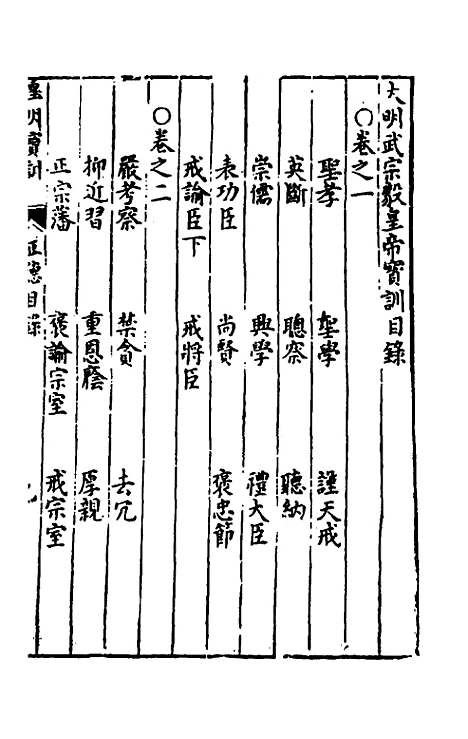 大明武宗毅皇帝寶訓目錄
○卷之一
聖孝 聖學 謹天戒
英斷 聰察 聽納
崇儒 興學 禮大臣
表功臣 尚賢 褒忠節
戒諭臣下 戒將臣
○卷之二
嚴考察 禁貪 去冗
抑近習 重恩廕 厚親
正宗藩 褒諭宗室 戒宗室
皇明寶訓 正德目錄